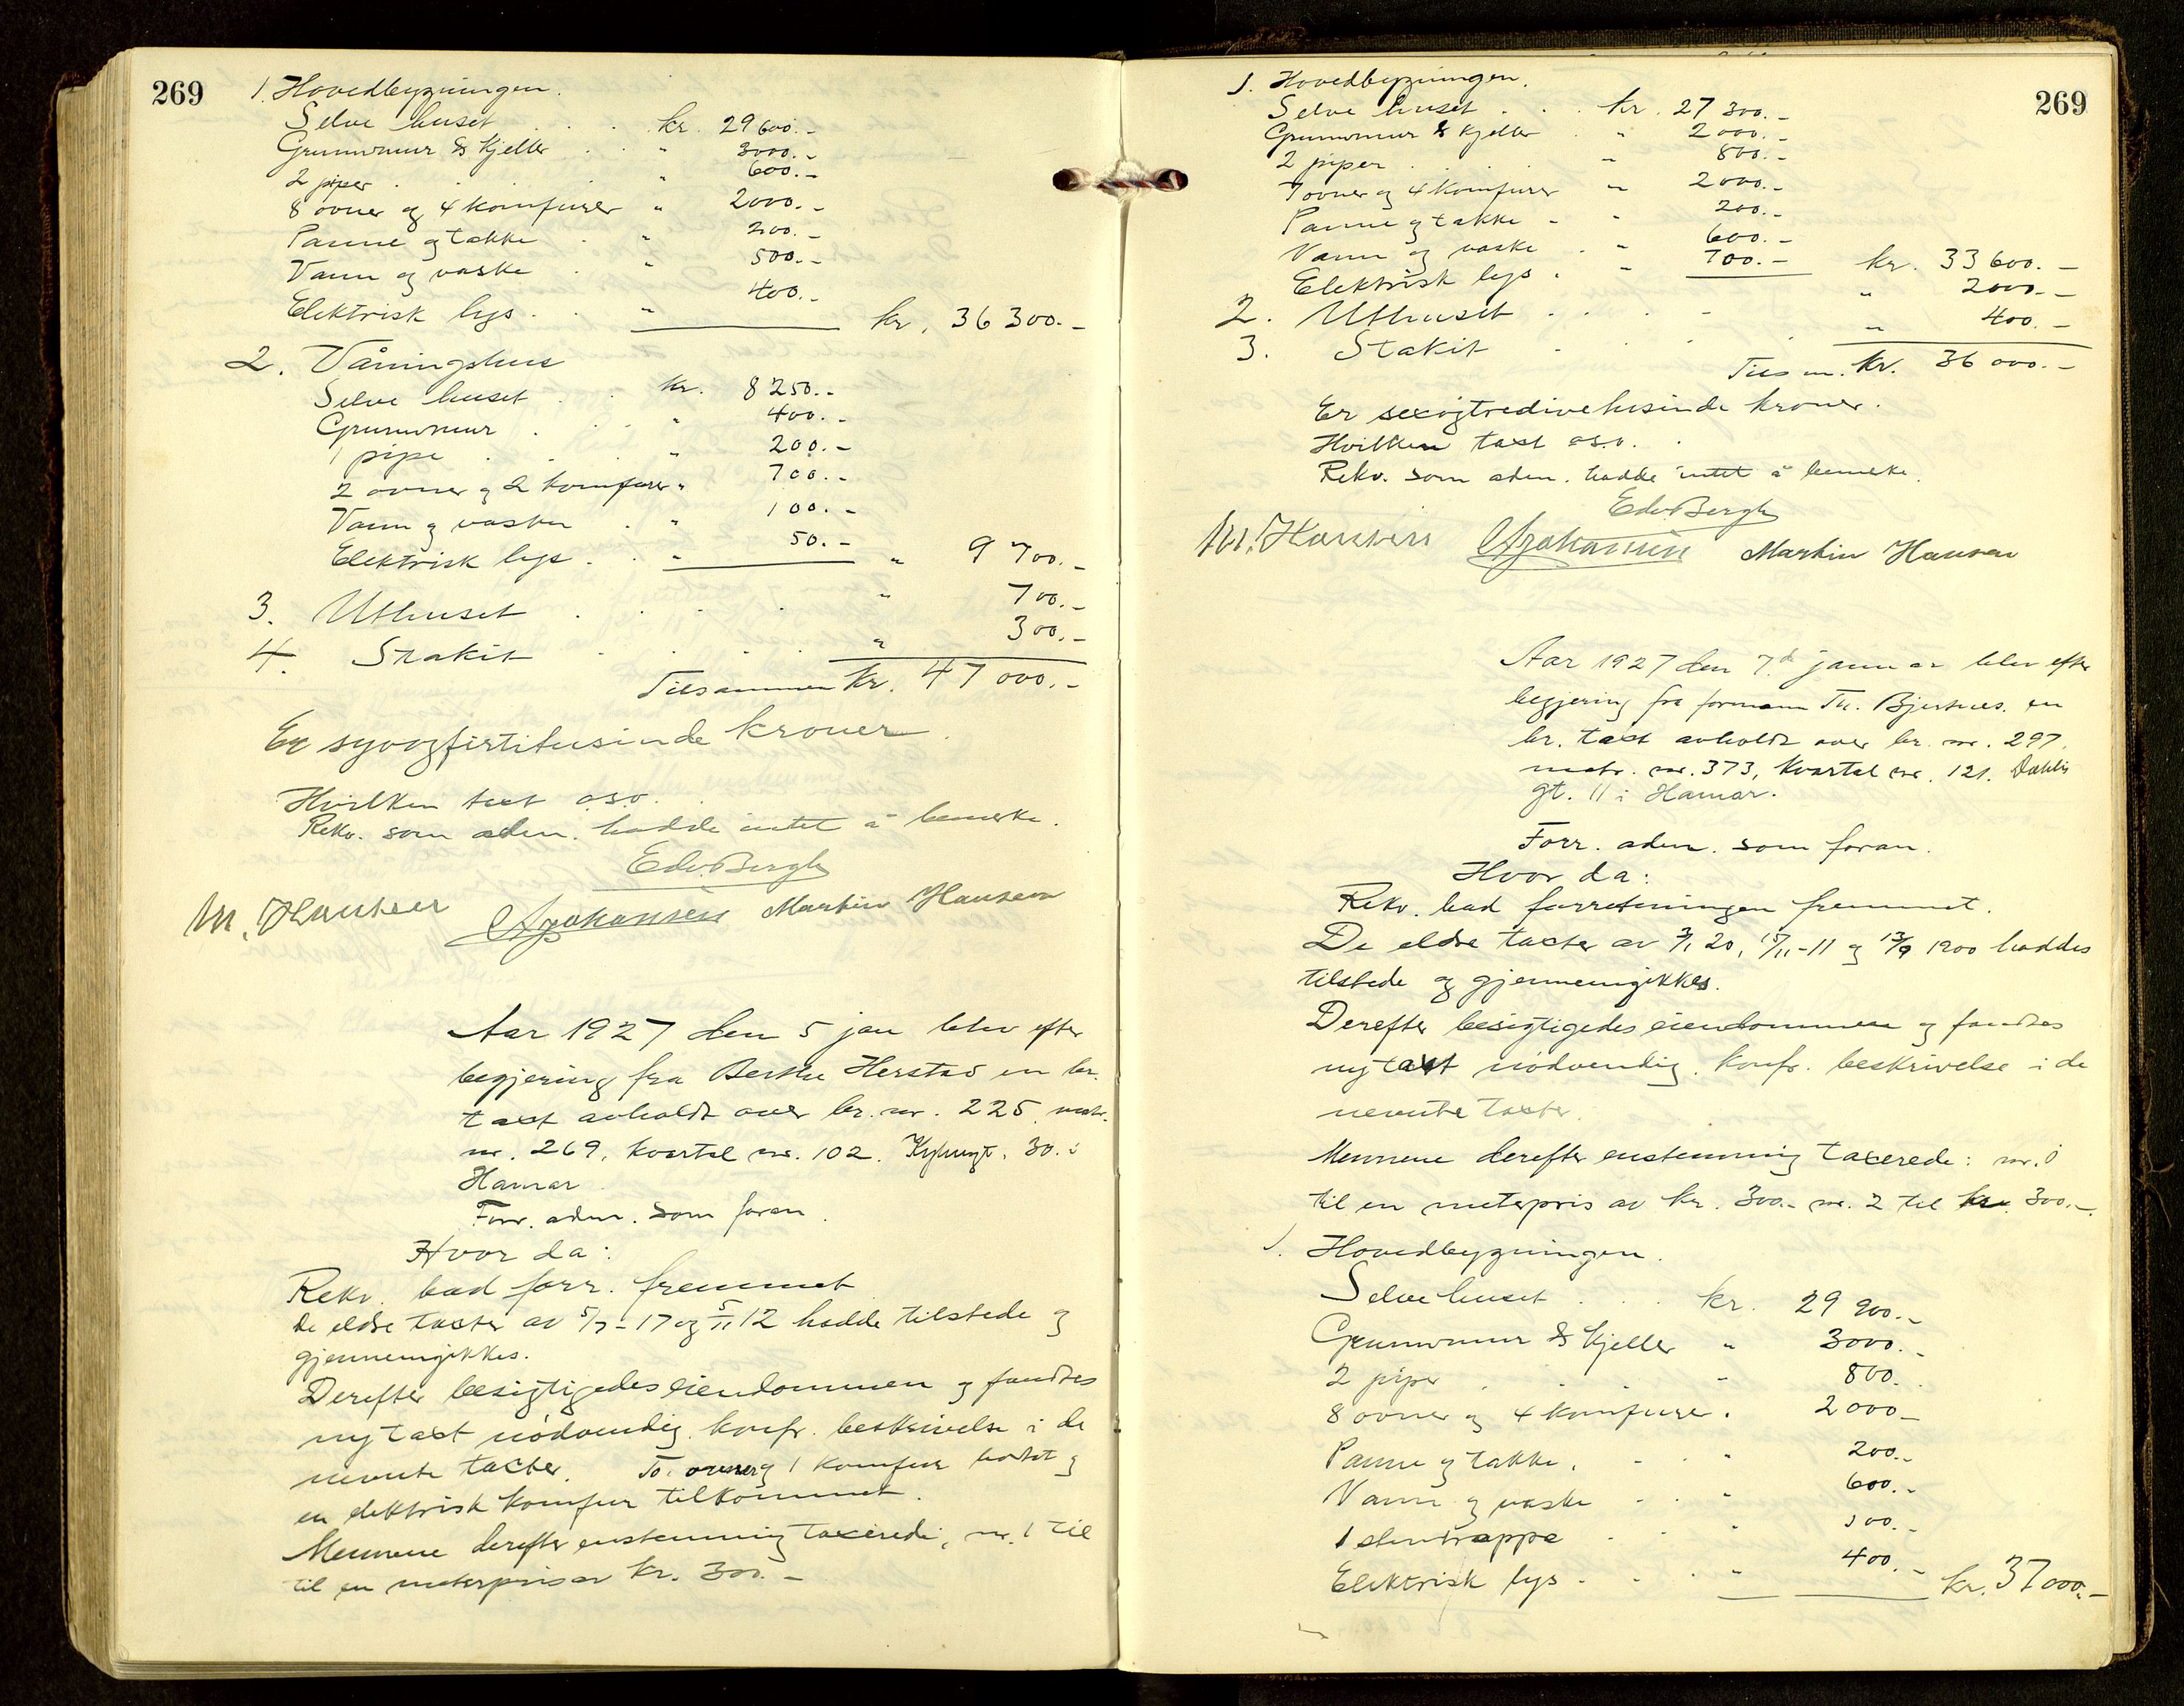 269
1. Hovedbygningen.
Selve huset . . . kr. 29 600.-
Grunnmur & kjeller . . " 3000.-
2 piper . . . " 600.-
8 ovner og 4 komfurer " 2000.-
Panne og takke . " 200.-
Vann og vaske . " 500.-
Elektrisk lys . . " 400.- kr. 36 300.-
2. Våningshus
Selve huset . . kr. 8 250.-
Grunnmur . . . " 400.-
1 pipe . . . " 200.-
2 ovner og 2 komfurer " 700.-
Vann og vasker . " 100.-
Elektrisk lys . . " 50.- " 9 700.-
3. Uthuset . . . . " 700.-
4. Stakit . . . . " 300.-
Tilsammen kr. 47 000.-
Er syvogfirtitusinde kroner.
Hvilken taxt o.s.v.
Rekv. som adm. hadde intet å bemerke.
Edv. Bergh
M. Hansen A Johansen Martin Hansen
Aar 1927 den 5 jan blev efter
begjering fra Berthe Herstad en br.
taxt avholdt over br. nr. 225, matr.
nr. 269, kvartal nr. 102. 30 i
Hamar.
Forr. adm. som foran.
Hvor da:
Rekv. bad forr. fremmet
de eldre taxter av 5/7-17 og 5/11 12 hadde tilstede og
gjennemgikkes.
Derefter besigtigedes eiendommen og fandtes
ny taxt nødvendig. konfr. beskrivelse i de
nevnte taxter. To ovner og 1 komfur og
en elektrisk komfur tilkommet.
Mennene derefter enstemmig taxerede; nr. 1 til
til en meterpris av kr. 300.-
269
1. Hovedbygningen.
Selve huset . . . kr. 27 300.-
Grunnmur & kjeller . " 2000.-
2 piper . . . . " 800.-
7 ovner og 4 komfurer " 2000.-
Panne og takke - " 200.-
Vann og vaske . " 600.-
Elektrisk lys . " 700.- kr. 33 600.-
2. Uthuset . . . - " 2000.-
3. Stakit . . . " 400.-
Tilsm. kr. 36 000.-
Er sexogtredivetusinde kroner.
Hvilken taxt o.s.v.
Rekv. som adm. hadde intet å bemerke.
Edv. Bergh
M. Hansen A Johansen Martin Hansen
Aar 1927 den 7d januar blev efter
begjering fra formann Th. Bjertnes. en
br. taxt avholdt over br. nr. 297.
matr. nr. 373, kvartal nr. 121. Dahls
gt. 11 i Hamar.
Forr. adm. som foran.
Hvor da:
Rekv. bad forretningen fremmet.
De eldre taxter av 3/1 20, 15/11-11 og 13/9 1900 haddes
tilstede og gjennemgikkes.
Derefter besigtigedes eiendommen og fandtes
ny taxt nødvendig. konfr. beskrivelse i de
nevnte taxter.
Mennene derefter enstemmig taxerede: nr. 1
til en meterpris av kr. 300.- nr. 2 til kr. 300.-
1. Hovedbygningen.
Selve huset . . . kr. 29 900.-
Grunnmur & kjeller " 3000.-
2 piper . . . " 800.
8 ovner og 4 komfurer . 2000-
Panne og takke . - " 200.-
Vann og vaske - . " 600.-
1 stentrappe . - " 100.-
Elektrisk lys . - . " 400.- kr. 37 000.-